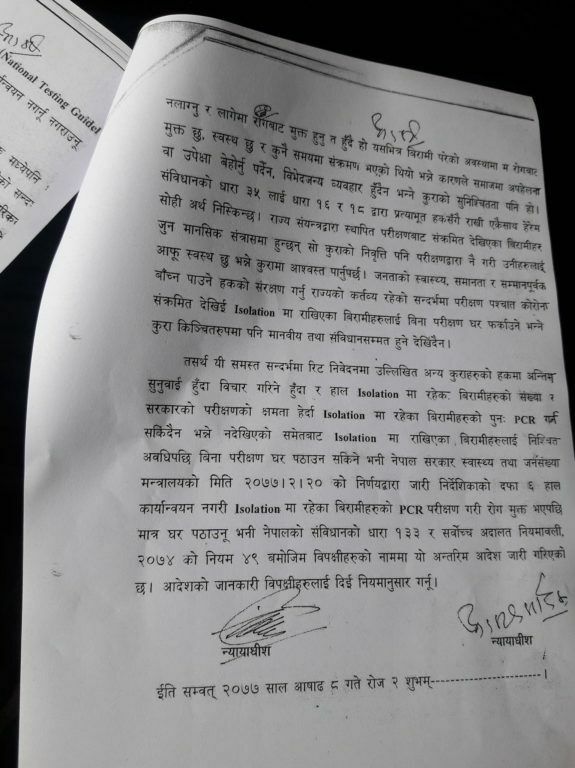 (National Testing Guidel
र्यान्वयन नगर्नू नगराउनू
नलाग्नु र लागेमा रोगबाट मुक्त हुनु त हुँदै हो यसभित्र बिरामी परेको अवस्थामा म रोगबाट
मुक्त छु, स्वस्थ छु र कुनै समयमा संक्रमण भएको थियो भन्ने कारणले समाजमा अपहेलना
वा उपेक्षा बेहोर्नु पर्दैन, विभेदजन्य व्यवहार हुँदैन भन्ने कुराको सुनिश्चितता पनि हो।
संविधानको धारा ३५ लाई धारा १६ र १८ द्वारा प्रत्याभूत हकसँगै राखी एकैसाथ हेरेमा
सोही अर्थ निस्किन्छ। राज्य संयन्त्रद्वारा स्थापित परीक्षणबाट संक्रमित देखिएका बिरामीहरु
जुन मानसिक संत्रासमा हुन्छन् सो कुराको निवृत्ति पनि परीक्षणद्वारा नै गरी उनीहरुलाई
आफू स्वस्थ छु भन्ने कुरामा आश्वस्त पार्नुपर्छ। जनताको स्वास्थ्य, समानता र सम्मानपूर्वक
बाँच्न पाउने हकको संरक्षण गर्नु राज्यको कर्तव्य रहेको सन्दर्भमा परीक्षण पश्चात कोरोना
संक्रमित देखिई Isolation मा राखिएका बिरामीहरुलाई विना परीक्षण घर फर्काउने भन्ने
कुरा किञ्चितरुपमा पनि मानवीय तथा संविधानसम्मत हुने देखिँदैन।
तसर्थ यी समस्त सन्दर्भमा रिट निवेदनमा उल्लिखित अन्य कुराहरुको हकमा अन्तिम
सुनुवाई हुँदा विचार गरिने हुँदा र हाल Isolation मा रहेका बिरामीहरुको संख्या र
सरकारको परीक्षणको क्षमता हेर्दा Isolation मा रहेका बिरामीहरुको पुनः PCR गर्न
सकिँदैन भन्ने नदेखिएको समेतबाट Isolation मा राखिएका बिरामीहरुलाई निश्चित
अवधिपछि विना परीक्षण घर पठाउन सकिने भनी नेपाल सरकार स्वास्थ्य तथा जनसंख्या
मन्त्रालयको मिति २०७७।२।२० को निर्णयद्वारा जारी निर्देशिकाको दफा ६ हाल
कार्यान्वयन नगरी Isolation मा रहेका बिरामीहरुको PCR परीक्षण गरी रोग मुक्त भएपछि
मात्र घर पठाउनू भनी नेपालको संविधानको धारा १३३ र सर्वोच्च अदालत नियमावली,
२०७४ को नियम ४९ बमोजिम विपक्षीहरुको नाममा यो अन्तरिम आदेश जारी गरिएको
छ। आदेशको जानकारी विपक्षीहरुलाई दिई नियमानुसार गर्नू।
न्यायाधीश
न्यायाधीश
ईति सम्वत् २०७७ साल आषाढ ८ गते रोज २ शुभम्--------------------------।